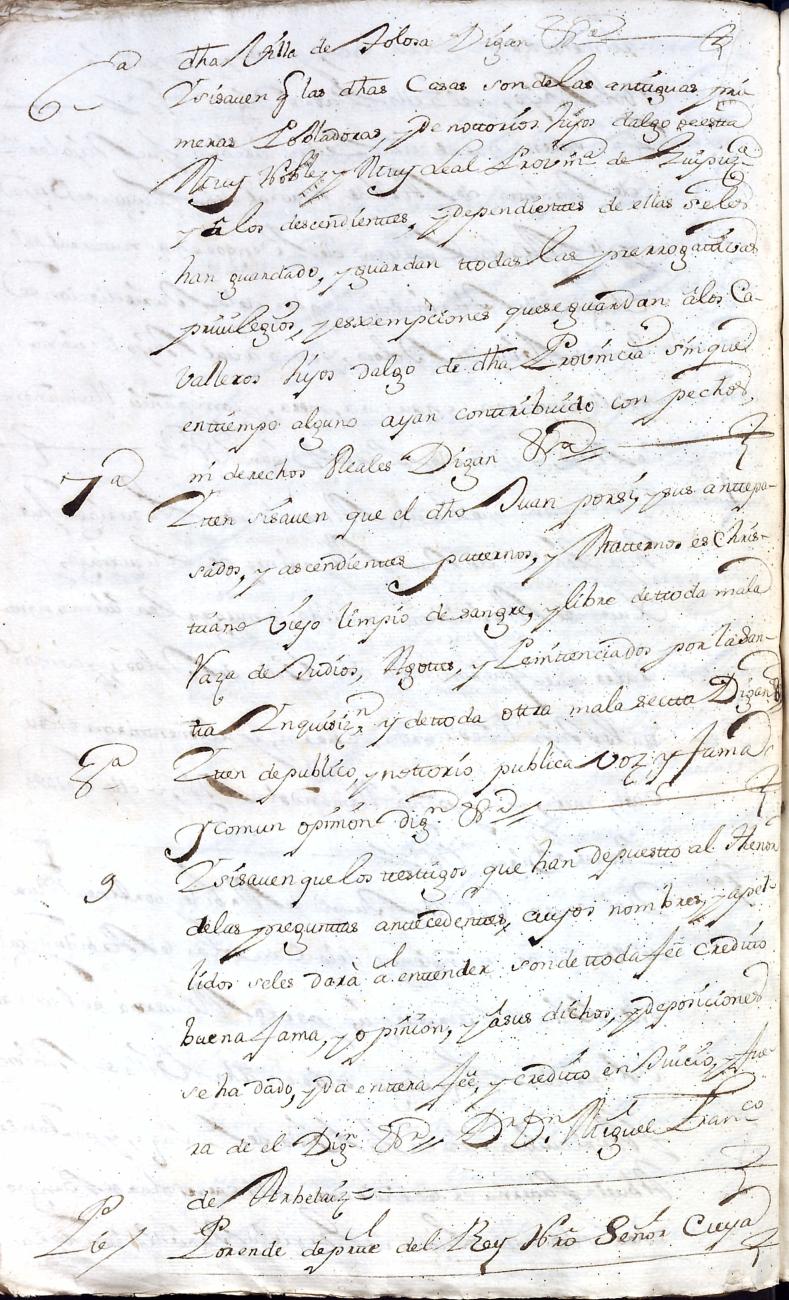 dha Villa de Tolosa Digan &ra
6a Y si saven q las dhas Casas son de las antiguas pri
meras Pobladoras, y de nottorios hijos dalgo de estta
Muy Noble y Muy Leal Provinª de Guipuzª
y a los descendienttes, y dependienttes de ellas se les
han guardado, y guardan ttodas las prerrogattivas
privilegios, y esxempciones que se guardan a los Ca-
valleros hijos dalgo de dha Provincia sin que
en tiempo alguno ayan conttribuido con pechos
ni derechos Reales Digan &ra
7a Ytten si saven que el dho Juan por si, y sus anttepa-
sados, y ascendienttes patternos, y Matternos es Chris-
ttiano Viejo limpio de sangre, y libre de ttoda mala
Raza de Judios, Agottes, y Penittenciados por la San-
tta Ynquisizn y de ttoda ottra mala sectta Digan &
8a Ytten de publico, y nottorio publica voz y fama
y comun opinion dign &ra
9 Y si saven que los ttesttigos que han depuestto al thenor
de las pregunttas anttecedenttes, cuyos nombres, y apel-
lidos se les darà à enttender son de ttoda feè creditto
buena fama, y opinion, y à sus dichos, y deposiciones
se ha dado, y da enttera feè, y creditto en Juicio, y fue
ra de el Dign &ra Dr Dn Miguel Franco
de Arbelaiz
Pie Por ende de partte del Rey Nro Señor Cuya